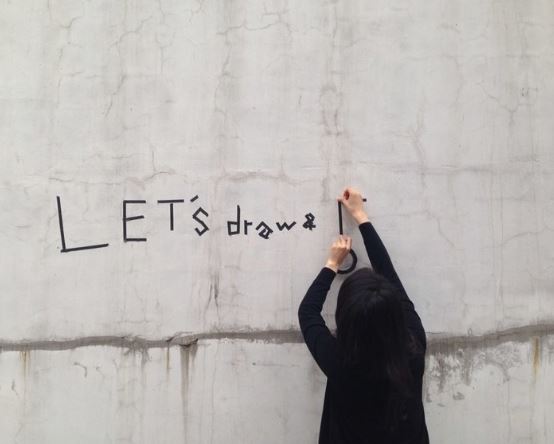 LET's draw &